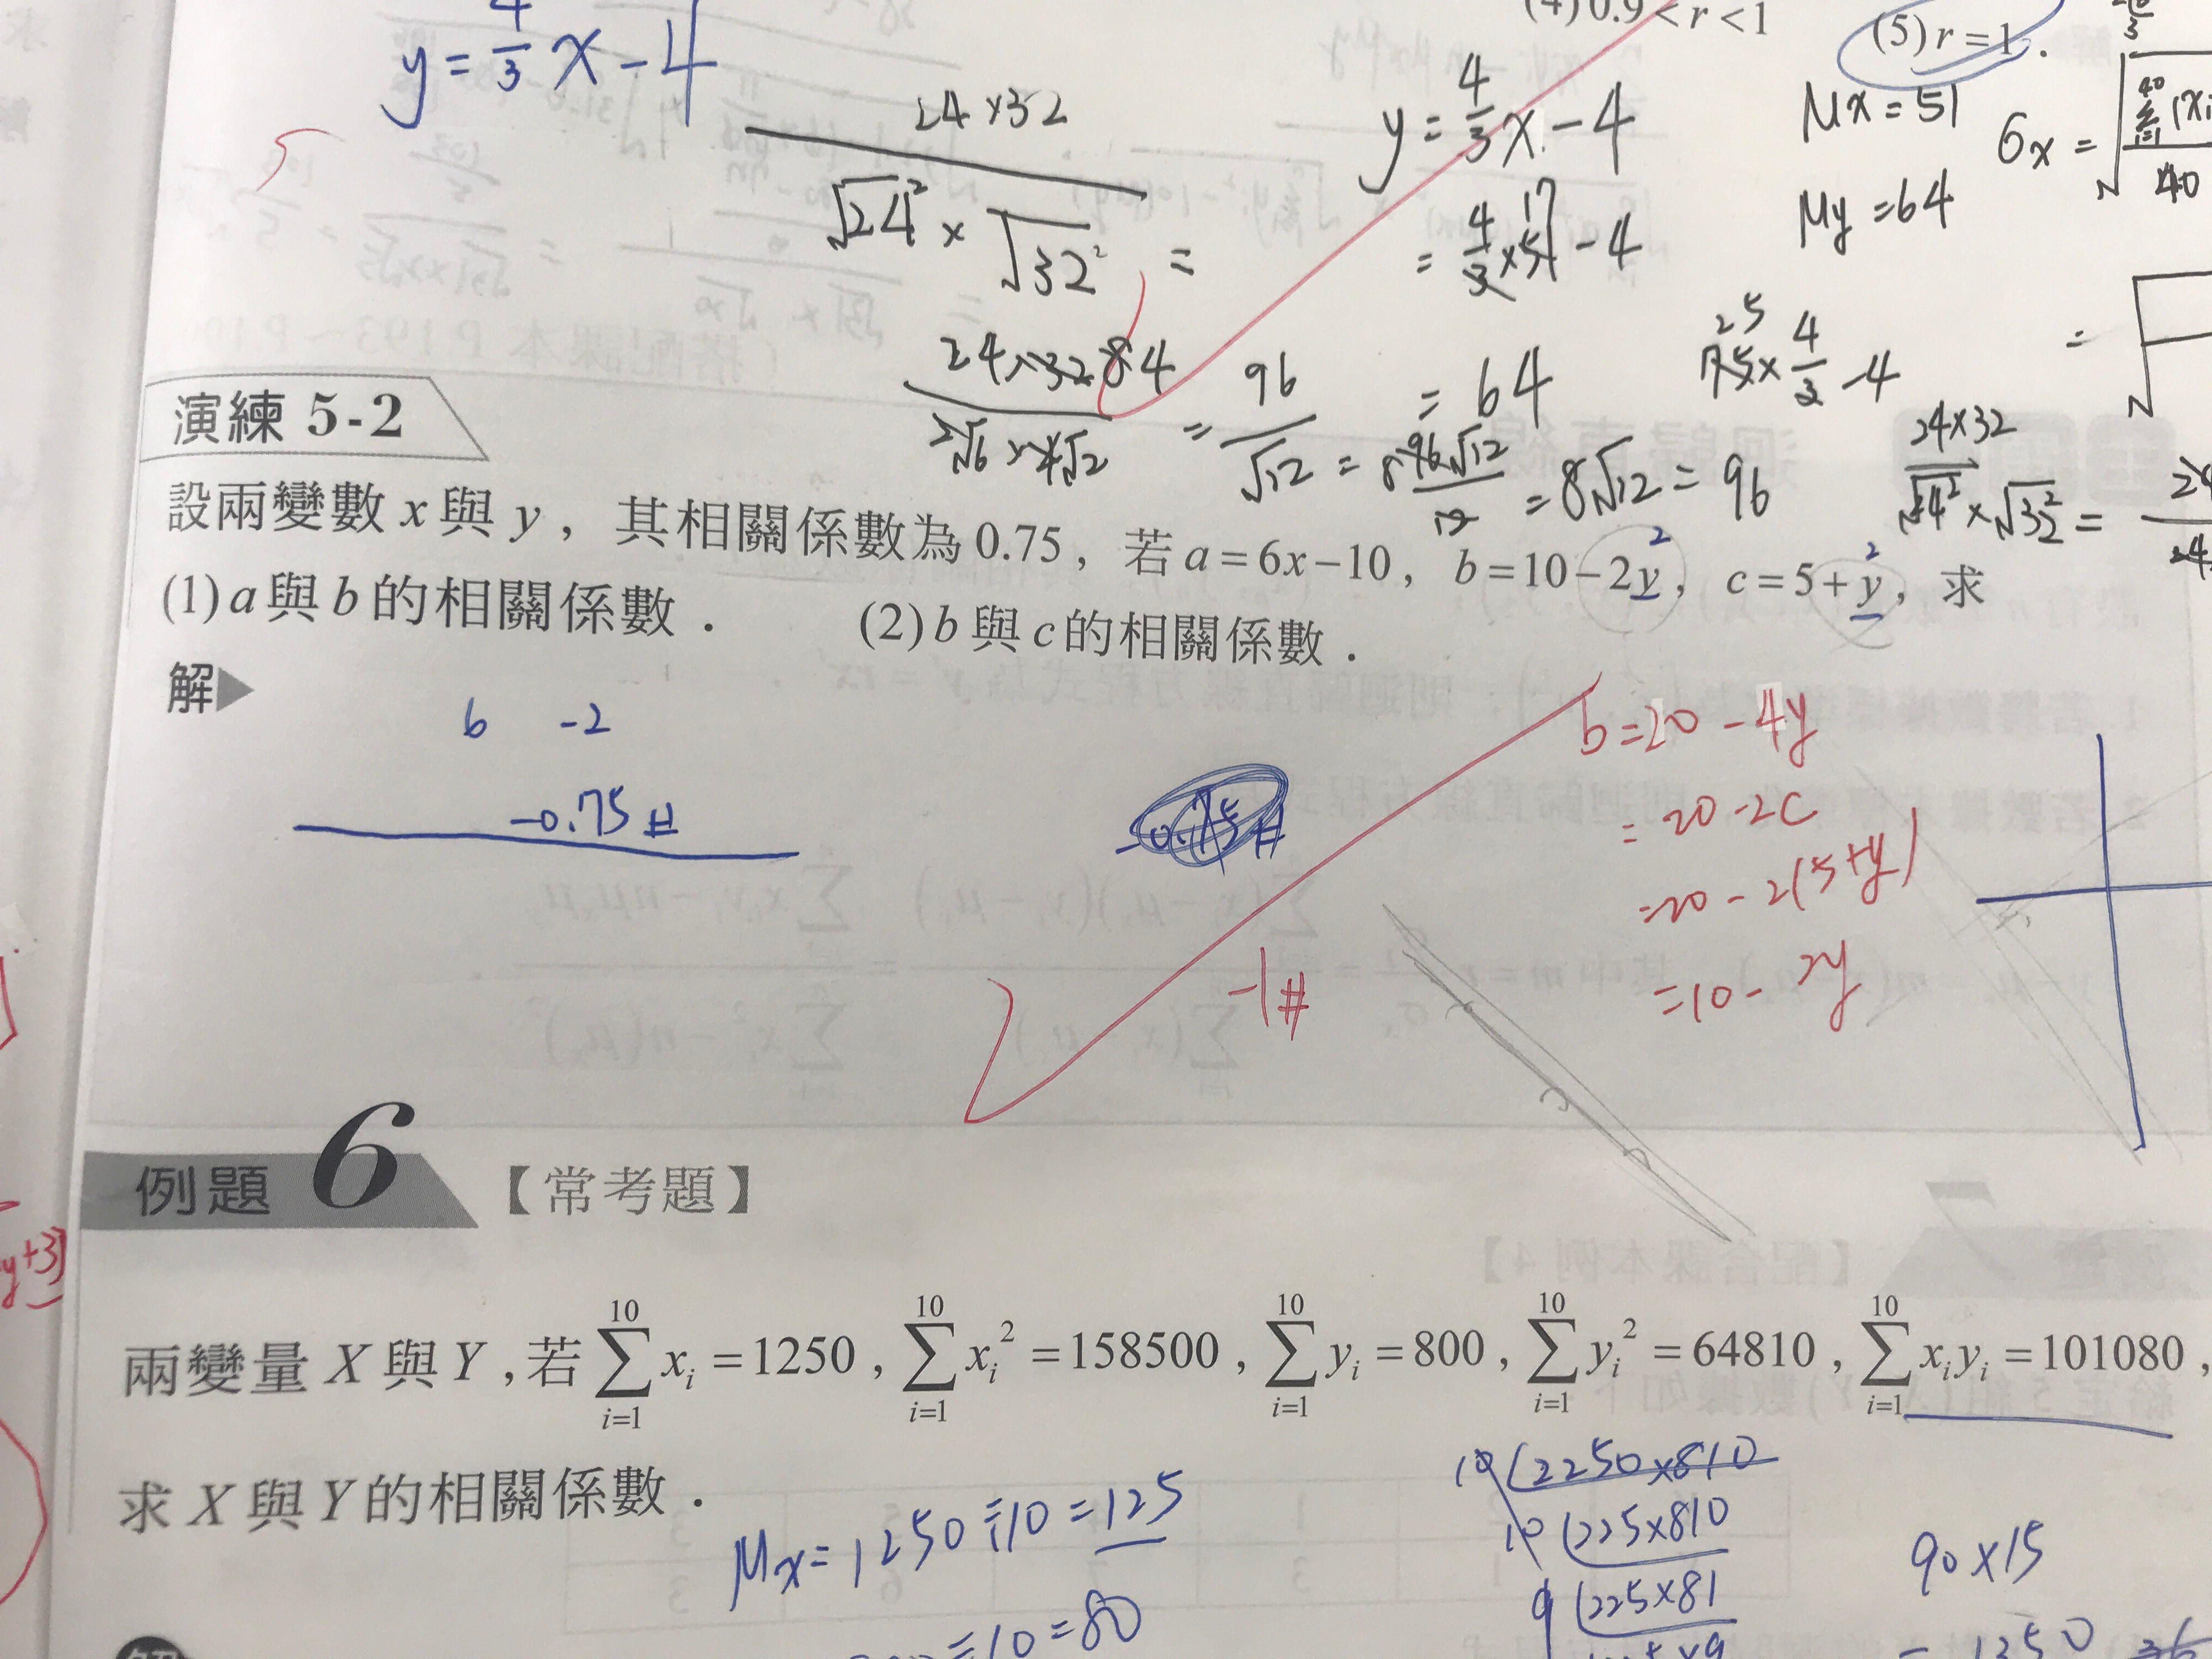 y = 4/3 x - 4
24 × 32
√24² × √32² =
24 × 32 84
2√6 × 4√2
= 96/√12 = 96√12/12 = 8√12 = 96
(4) 0.9 < r < 1
(5) r = 1.
y = 4/3 x - 4
= 4/3 × 51 17 - 4
= 64
Mx = 51
My = 64
6x =
40
75 25 × 4/3 - 4
24×32
√24² × √32² =
演練 5-2
設兩變數 x 與 y，其相關係數為 0.75，若 a = 6x − 10，b = 10 − 2y，c = 5 + y，求
(1) a 與 b 的相關係數．　(2) b 與 c 的相關係數．
解▶
6 -2
-0.75 #
-0.75 #
-1 #
b = 20 - 4y
= 20 - 2c
= 20 - 2(5+y)
= 10 - 2y
例題 6 【常考題】
y+3)
兩變量 X 與 Y，若 \sum_{i=1}^{10} x_i = 1250，\sum_{i=1}^{10} x_i^2 = 158500，\sum_{i=1}^{10} y_i = 800，\sum_{i=1}^{10} y_i^2 = 64810，\sum_{i=1}^{10} x_i y_i = 101080，
求 X 與 Y 的相關係數．
Mx = 1250 ÷ 10 = 125
÷ 10 = 80
10 2250×810
10 225×810
9 225×81
90 × 15
= 1350